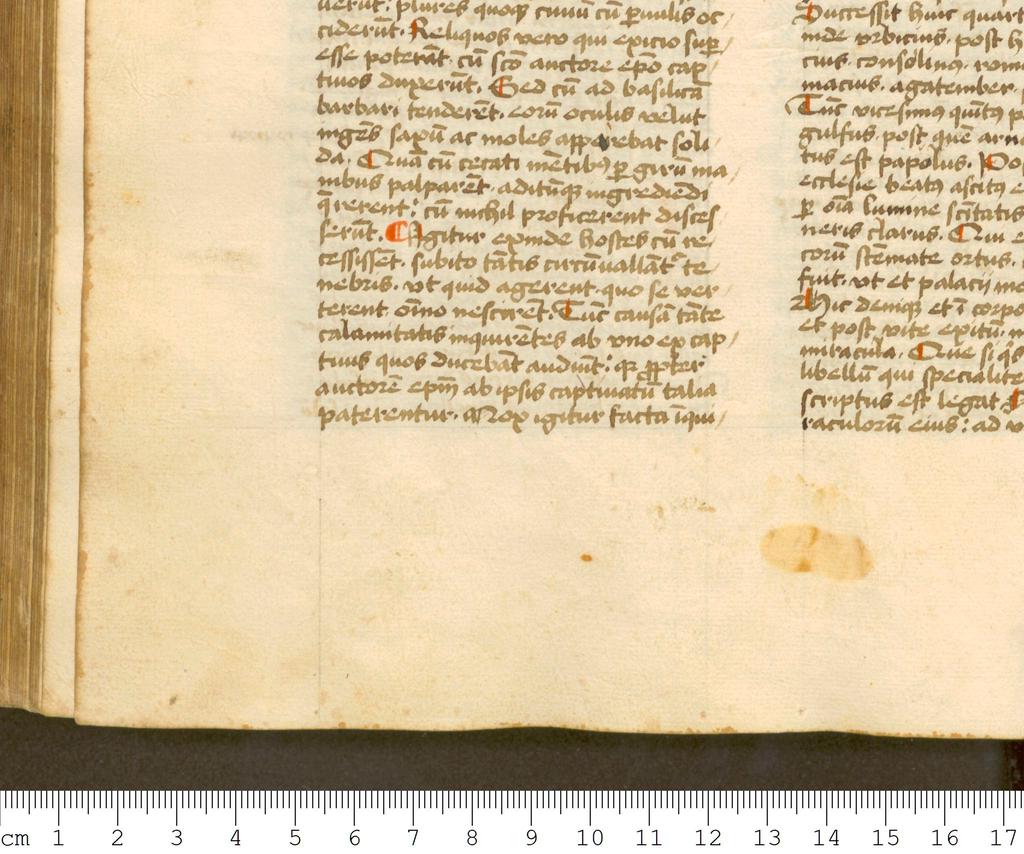 uerūt: plures quoqꝫ ciuiū cū ꝑuulis oc-
ciderūt. Reliquos vero qui exicio suꝑ-
esse poterāt. cū scō auctore ep̄o cap-
tiuos duxerūt. Sed cū ad basilicā
barbari tenderēt. eorū oculis velut
ingēs saxū ac moles apparebat soli-
da. Quā cū cecati mētibꝫ ꝑ girū ma-
nibus palparēt. aditūqꝫ ingrediēdi
q̄rerent: cū nichil proficerent disces
serūt. Igitur exinde hostes cū re-
cessissēt. subito tātis circūuallāt᷑ te-
nebris. vt quid agerent. quo se ver
terent om̄ino nescirēt. Tūc causā tāte
calamitatis inquirētes ab vno ex cap-
tiuis quos ducebāt audiūt: qꝛ ꝓpter
auctorē ep̄m ab ipsis captiuatū talia
paterentur. Nox igitur facta īqui-
Successit huic quart
inde vrbicius. post h
cius. consolinꝰ. rom
macius. agatember.
Tūc vicesimus quītꝰ p
gulfus. post quē arn
tus est papolus. Po
ecclesie beatꝰ ascitꝰ e
ꝑ oīa lumine scītatis
neris clarus. Qui e
corū stēmate ortus.
fuit. vt et palacij me
Hic deniqꝫ et ī corpo
et post vite exitū. m
miracula. Que si q̇s
libellū qui specialite
scriptus est legat.
raculorū eius: ad v
cm 1 2 3 4 5 6 7 8 9 10 11 12 13 14 15 16 17